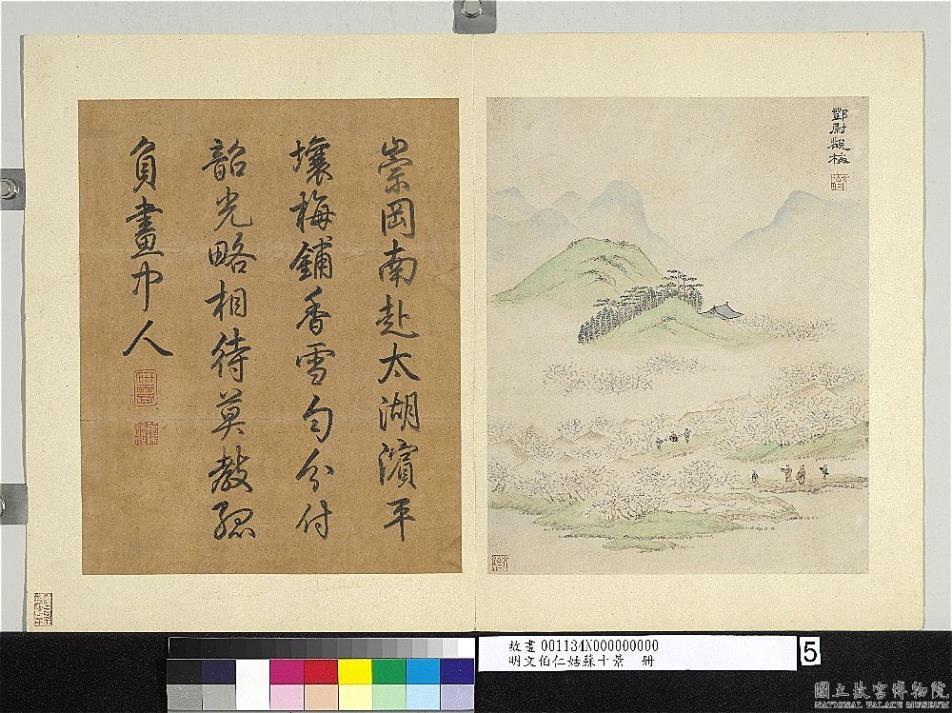 鄧尉觀梅
崇岡南赴太湖濱平
壤梅鋪香雪勻分付
韶光略相待莫教孤
負畫中人
故畫 001134N000000000
明文伯仁姑蘇十景 冊
5
國立故宮博物院
NATIONAL PALACE MUSEUM